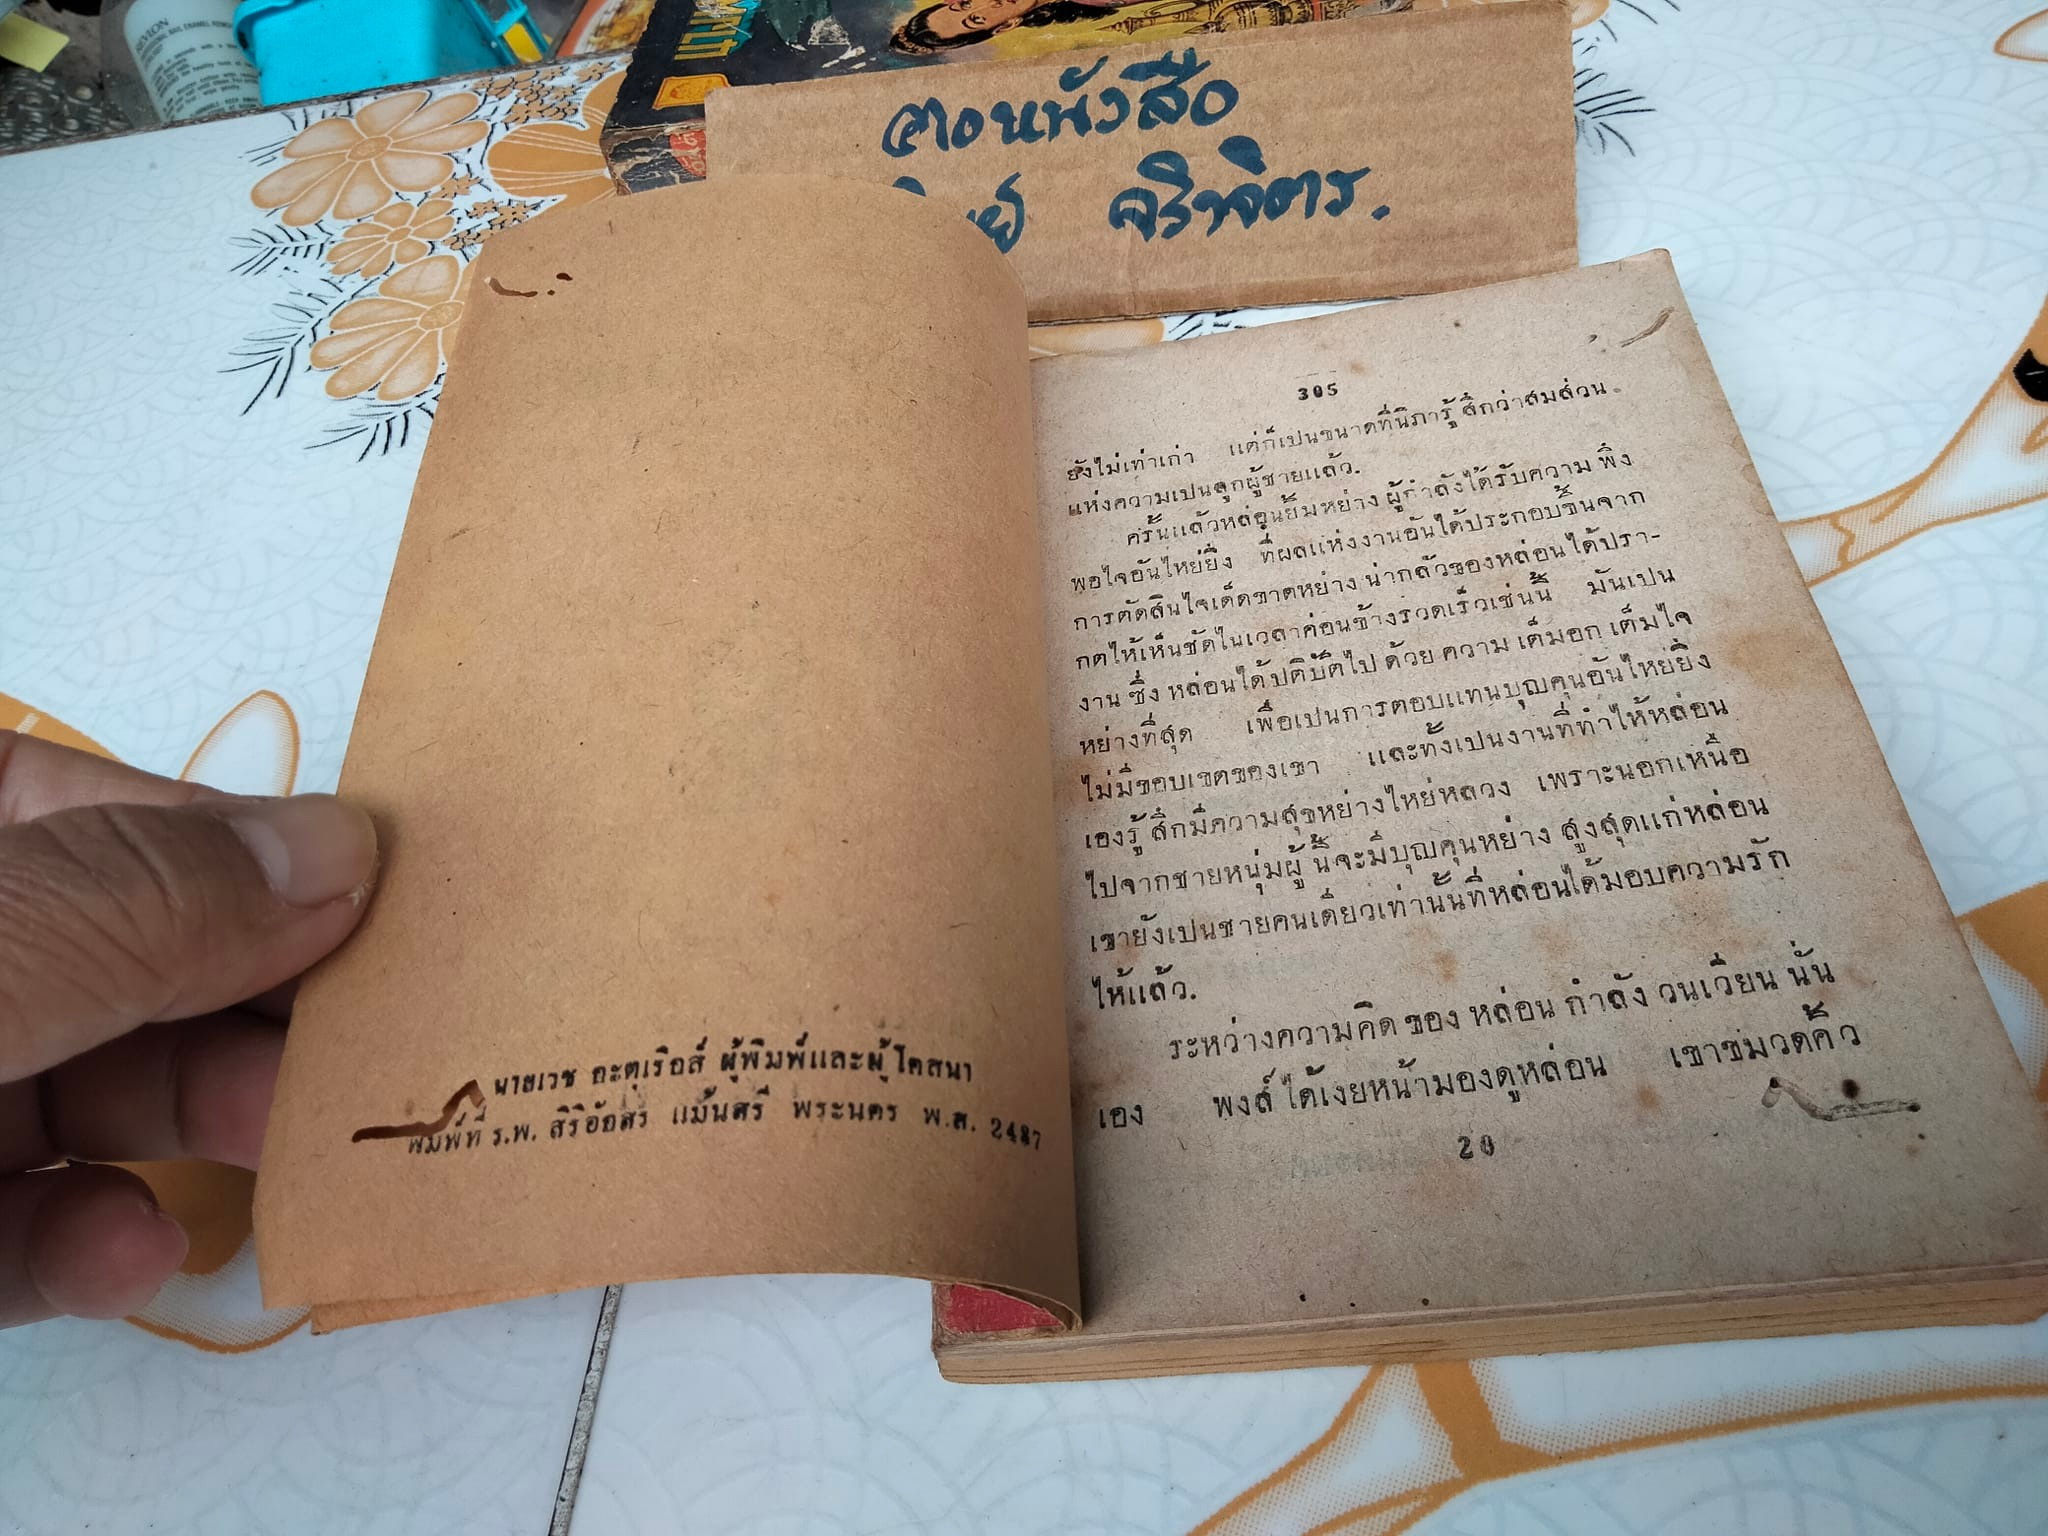 REVLON
ตอหนังสือ
จริาจิตร.
นายเวช อะตุเรือส์ ผู้พิมพ์และผู้โคสนา
พิมพ์ที่ ร.พ. สิริอักสร แม้นสรี พระนคร พ.ส. 2487
305
ยังไม่เท่าเก่า แต่ก็เปนขนาดที่นิภารู้สึกว่าสมส่วน
แห่งความเปนลูกผู้ชายแล้ว.
ครั้นแล้วหล่อนยิ้มหย่างผู้กำลังได้รับความพึง
พอไจอันไหย่ยิ่ง ที่ผลแห่งงานอันได้ประกอบขึ้นจาก
การตัดสินไจเด็ดขาดหย่างน่ากลัวของหล่อนได้ปรา-
กตไห้เห็นชัดไนเวลาค่อนข้างรวดเร็วเช่นนี้ มันเปน
งาน ซึ่ง หล่อนได้ปติบัติไป ด้วย ความ เต็มอก เต็มไจ
หย่างที่สุด เพื่อเปนการตอบแทนบุญคุนอันไหย่ยิ่ง
ไม่มีขอบเขตของเขา และทั้งเปนงานที่ทำไห้หล่อน
เองรู้สึกมีความสุขหย่างไหย่หลวง เพราะนอกเหนือ
ไปจากชายหนุ่มผู้นี้จะมีบุญคุนหย่าง สูงสุดแก่หล่อน
เขายังเปนชายคนเดียวเท่านั้นที่หล่อนได้มอบความรัก
ไห้แล้ว.
ระหว่างความคิด ของ หล่อน กำลัง วนเวียน นั่น
เอง พงส์ได้เงยหน้ามองดูหล่อน เขาขมวดคิ้ว
20